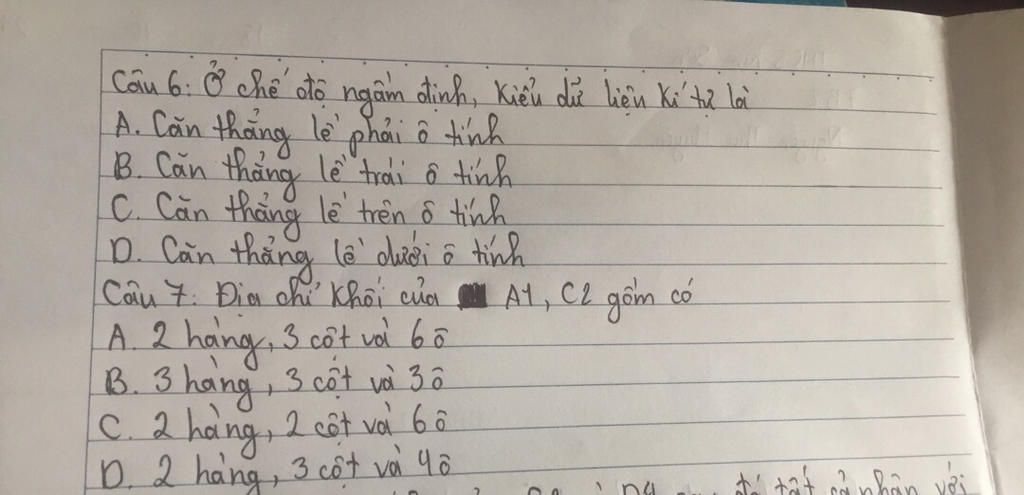 Câu 6: Ở chế độ ngầm định, kiểu dữ liệu kí tự là
A. Căn thẳng lề phải ô tính
B. Căn thẳng lề trái ô tính
C. Căn thẳng lề trên ô tính
D. Căn thẳng lề dưới ô tính
Câu 7: Địa chỉ khối của A1, C2 gồm có
A. 2 hàng, 3 cột và 6 ô
B. 3 hàng, 3 cột và 3 ô
C. 2 hàng, 2 cột và 6 ô
D. 2 hàng, 3 cột và 4 ô
đó tất cả nhân với